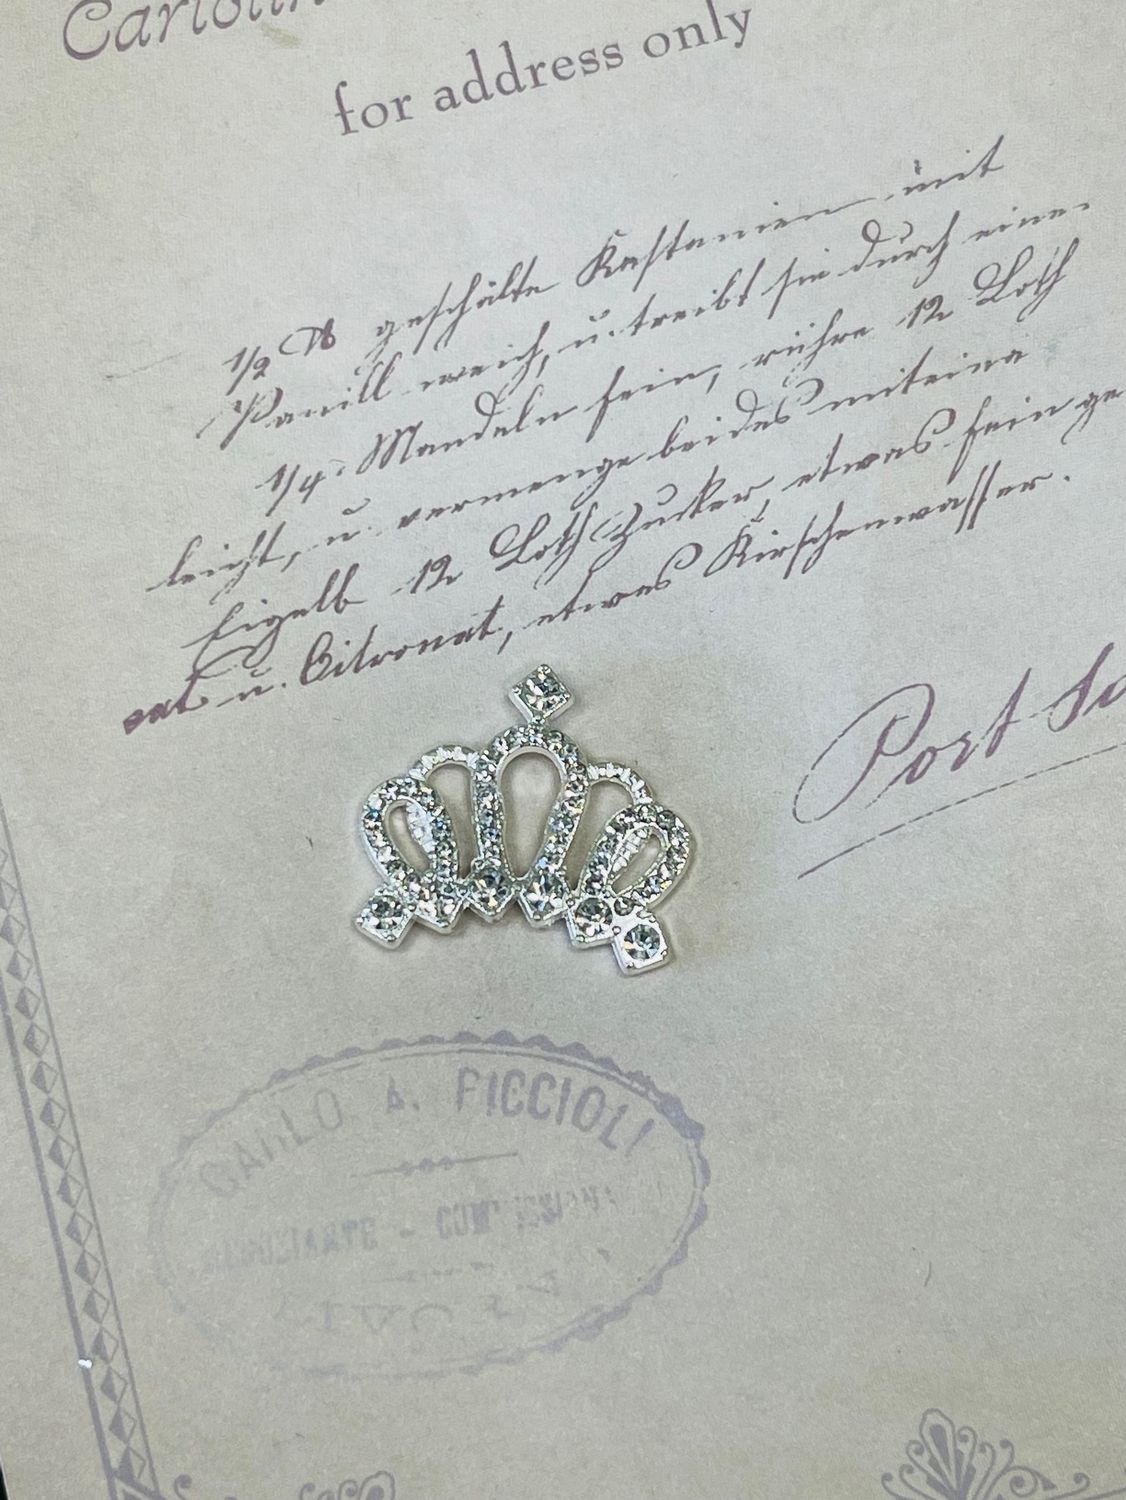 for address only
1/2 ℔ geschälte Kastanien mit
Vanill weich, u. treibt sie durch eine
1/4. Mandeln fein, rühre 12 Loth
leicht, u. vermenge beides miteina
Eigelb 12 Loth Zucker, etwas fein ge
u. Citronat, etwas Kirschenwasser.
Port
CARLO A. FICCIOLI